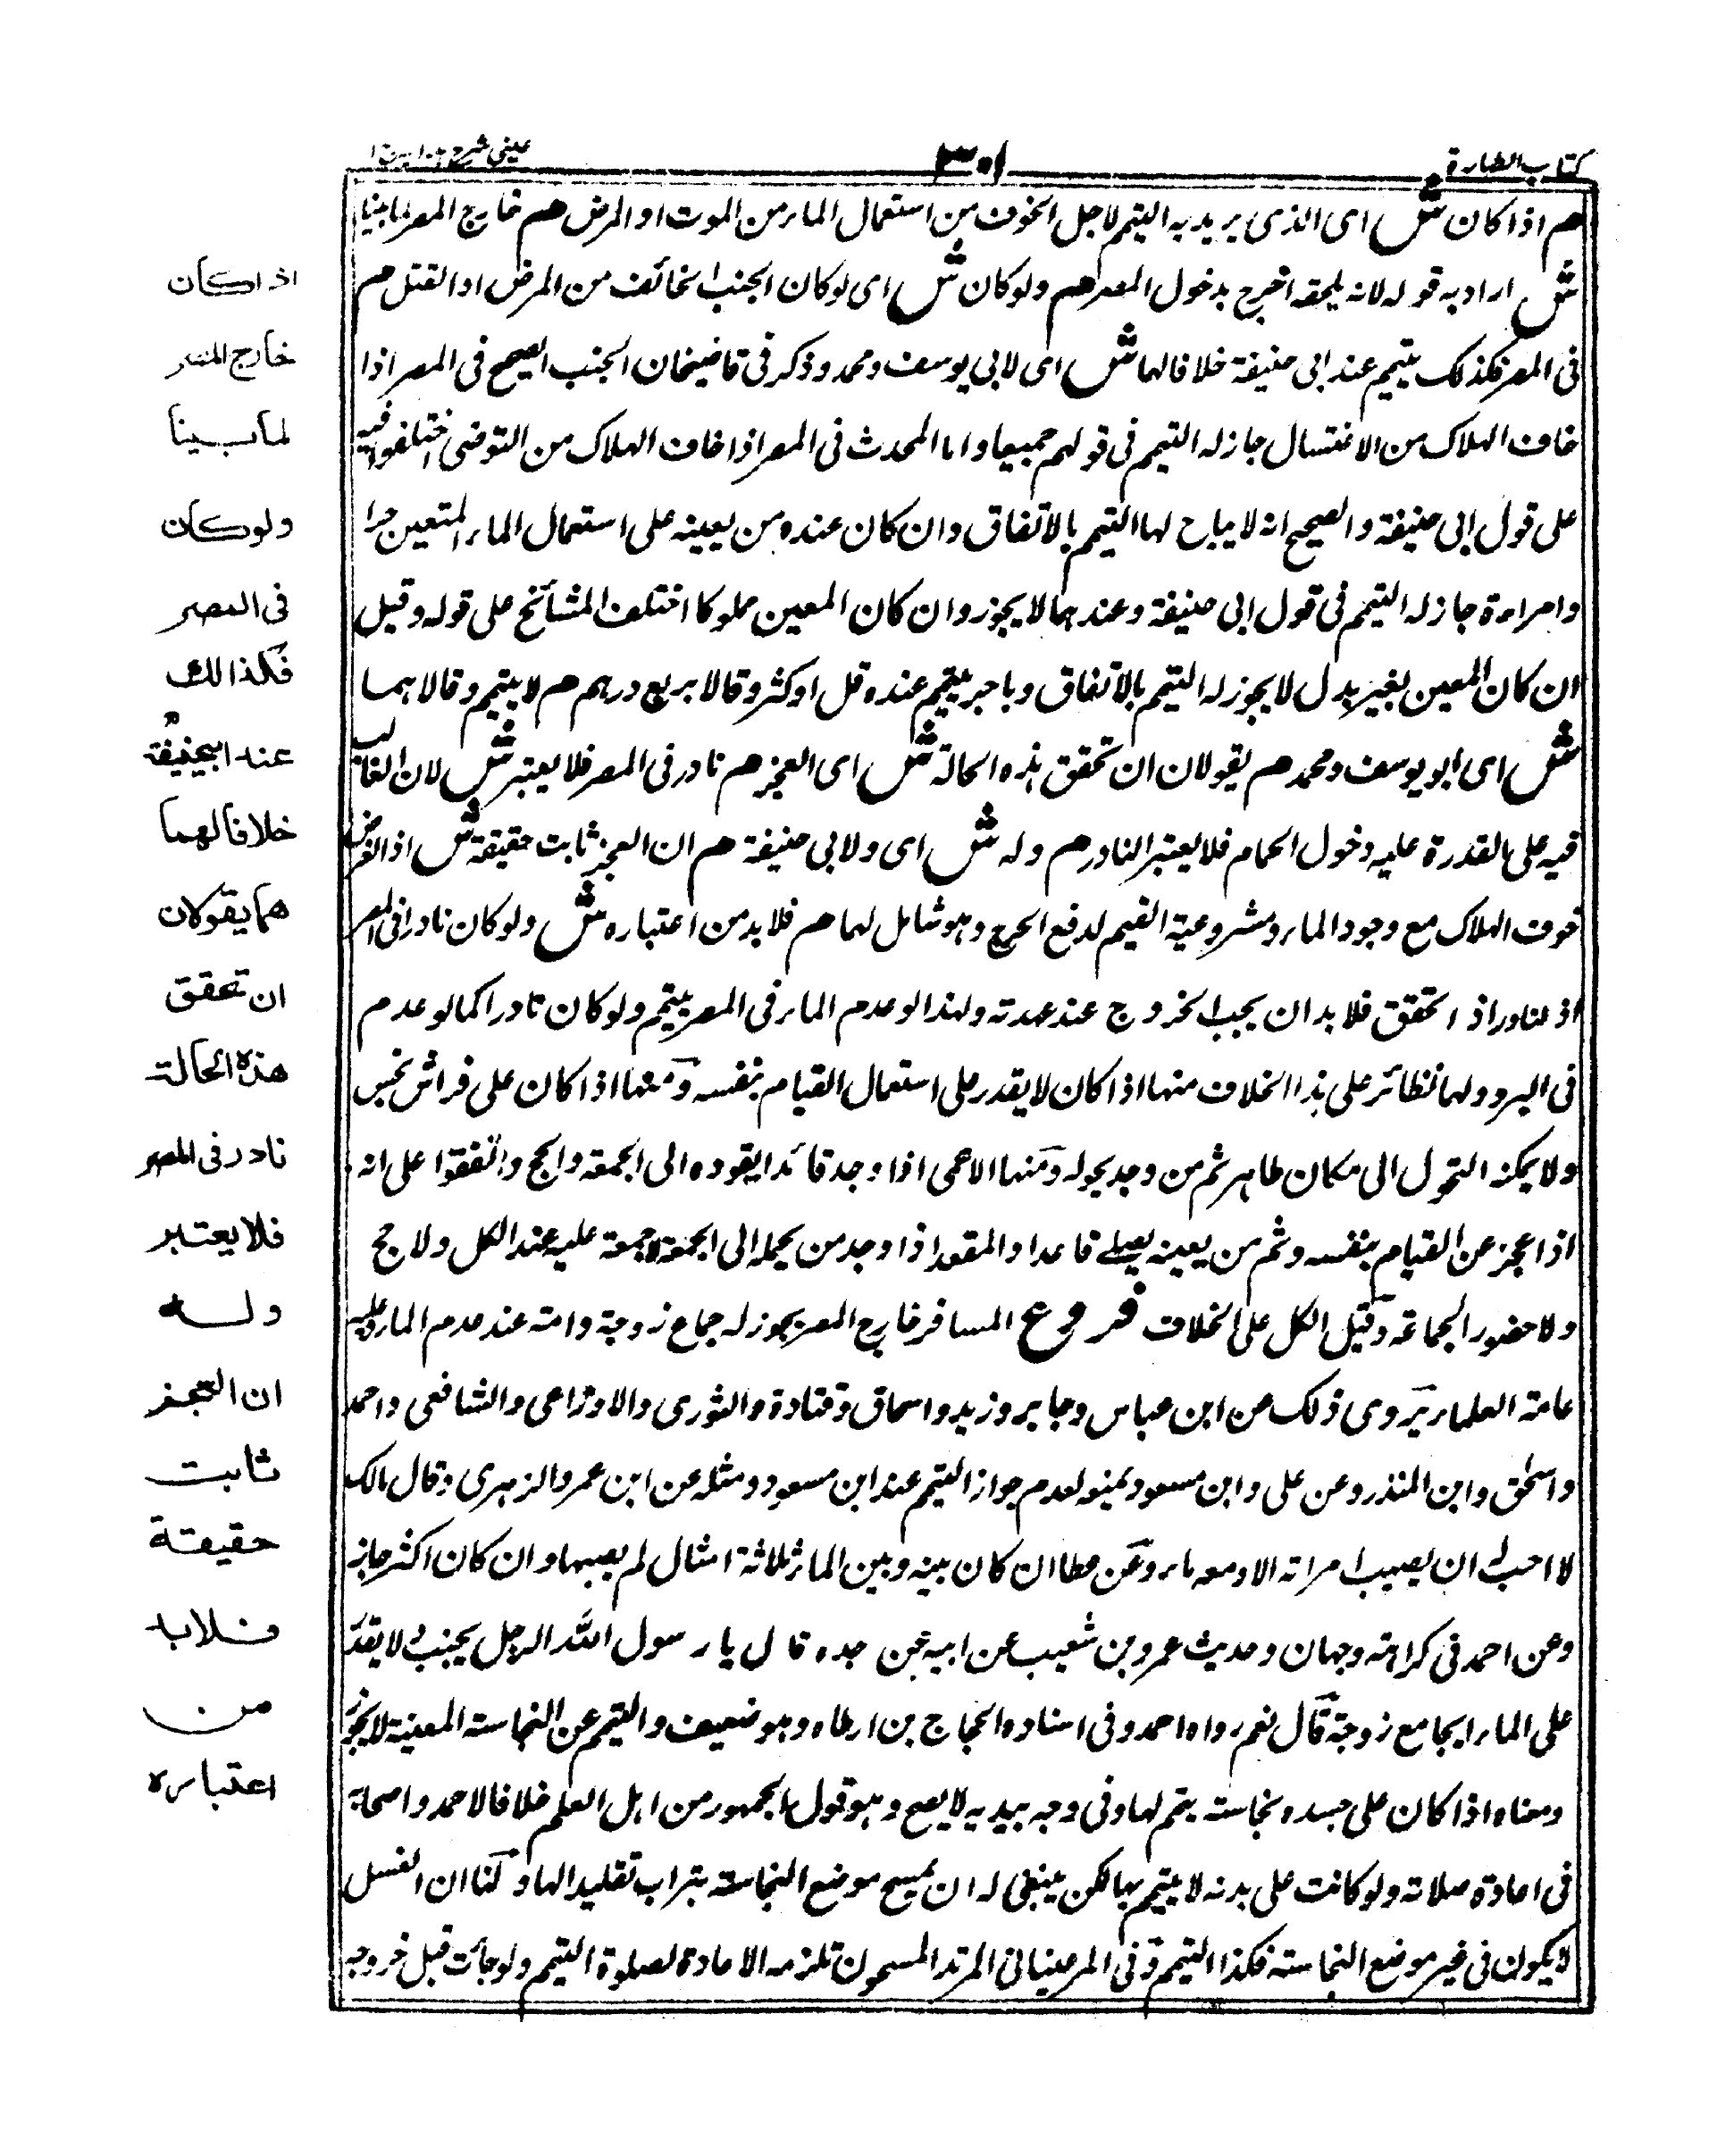 كتاب الطهارة
٣٠١
عينى شرح هداية ج ا
هم اذا كان ش اى الذى يريد به التيمم لاجل الخوف من استعمال الماء من الموت او المرض هم خارج المصر لما بينا
ش اراد به قوله لانه يلحقه الحرج بدخول المصر هم ولو كان ش اى لو كان الجنب الخائف من المرض او القتل هم
فى المصر فكذلك يتيمم عند ابى حنيفة خلافا لهما ش اى لابى يوسف ومحمد وذكر فى قاضيخان الجنب الصحيح فى المصر اذا
خاف الهلاك من الاغتسال جاز له التيمم فى قولهم جميعا واما المحدث فى المصر اذا خاف الهلاك من التوضى اختلفوا فيه
على قول ابى حنيفة والصحيح انه لا يباح لها التيمم بالاتفاق وان كان عنده من يعينه على استعمال الماء المتعين حرا
وامراءة جاز له التيمم فى قول ابى حنيفة وعندهما لا يجوز وان كان المعين مملوكا اختلف المشائخ على قوله وقيل
ان كان المعين بغير بدل لا يجوز له التيمم بالاتفاق وباجر يتيمم عنده قل او كثر وقالا بربع درهم هم لا يتيمم وقالا هما
ش اى ابو يوسف ومحمد هم يقولان ان تحقق هذه الحالة ش اى العجز هم نادر فى المصر فلا يعتبر ش لان الغالب
فيه على القدرة عليه دخول الحمام فلا يعتبر النادر هم وله ش اى ولابى حنيفة هم ان العجز ثابت حقيقة ش اذ الغرض
خوف الهلاك مع وجود الماء ومشروعية التيمم لدفع الحرج وهو شامل لهما هم فلا بد من اعتباره ش ولو كان نادرا فى المصر
اذ النادر اذا تحقق فلا بد ان يجب الخروج عند عهدته ولهذا لو عدم الماء فى المصر يتيمم ولو كان نادرا كما لو عدم
فى البرد ولهما نظائر على هذا الخلاف منها اذا كان لا يقدر على استعمال القيام بنفسه ومنها اذا كان على فراش نجس
ولا يمكنه التحول الى مكان طاهر ثم من وجد يحوله ومنها الاعمى اذا وجد قائدا يقوده الى الجمعة والحج واتفقوا على انه
اذا عجز عن القيام بنفسه وثم من يعينه يصلے قاعدا والمقعد اذا وجد من يحمله الى الجمعة لا جمعة عليه عند الكل ولا حج
ولا حضور الجماعة وقيل الكل على الخلاف فروع المسافر خارج المصر يجوز له جماع زوجة وامته عند عدم الماء وعليه
عامة العلماء يروى ذلك عن ابن عباس وجابر وزيد واسحاق وقتادة والثورى والاوزاعى والشافعى واحمد
واسحٰق وابن المنذر وعن على وابن مسعود يمنع لعدم جواز التيمم عند ابن مسعود ومثله عن ابن عمر والزهرى وقال مالك
لا احب لى ان يصيب امراته الا ومعه ماء وعن عطاء ان كان بينه وبين الماء ثلاثة امثال لم يصبها وان كان اكثر جاز
وعن احمد فى كراهته وجهان وحديث عمرو بن شعيب عن ابيه عن جده قال يا رسول الله الرجل يجنب لا يقدر
على الماء ايجامع زوجة قال نعم رواه احمد وفى اسناده الحجاج بن ارطاه وهو ضعيف والتيمم عن النجاسة المعينة لا يجوز
ومعناه اذا كان على جسده نجاسة يتمم لها وفى وجه بيديه لا يصح وهو قول الجمهور من اهل العلم خلافا لاحمد واصحابه
فى اعادة صلاته ولو كانت على بدنه لا يتيمم بها لكن ينبغى له ان يمسح موضع النجاسة بتراب تقليلا لها ولنا ان الغسل
لا يكون فى غير موضع النجاسة فكذا التيمم وفى المرغينانى المرتد المسجون تلزمه الاعادة لصلوة التيمم ولو جأت قبل خروجه
اذا كان
خارج المصر
لما بينا
ولو كان
فى المصر
فكذالك
عند ابيحنيفة
خلافا لهما
هما يقولان
ان تحقق
هذه الحالة
نادر فى المصر
فلا يعتبر
وله
ان العجز
ثابت
حقيقة
فلا بد
من
اعتباره